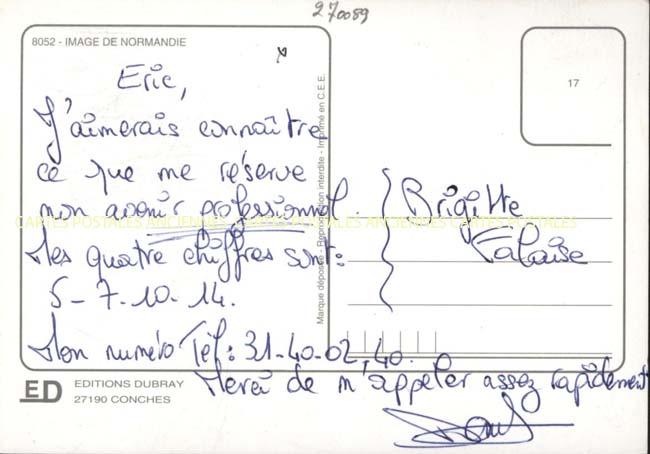 270089
8052 - IMAGE DE NORMANDIE
Eric,
J'aimerais connaître
ce que me réserve
mon avenir professionnel.
Mes quatre chiffres sont:
5-7-10-14.
Mon numéro Tél: 31-40-02,40.
Merci de m'appeler assez rapidement
Brigitte
Falaise
17
Marque déposée - Reproduction interdite - Imprimé en C.E.E.
CARTES POSTALES ANCIENNES CARTES POSTALES ANCIENNES CARTES POSTALES
ED
EDITIONS DUBRAY
27190 CONCHES